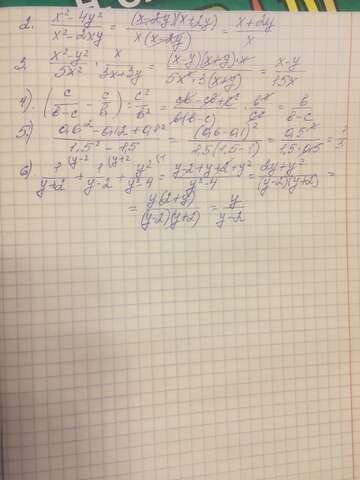 2. (x²-4y²)/(x²-2xy) = ((x-2y)(x+2y))/(x(x-2y)) = (x+2y)/x
3. (x²-y²)/5x² · x/(3x+3y) = ((x-y)(x+y)·x)/(5x²·3(x+y)) = (x-y)/15x
4). (c/(b-c) - c/b) : c²/b² = (cb-cb+c²)/(b(b-c)) · b²/c² = b/(b-c)
5). (0,6²-0,12+0,1²)/(1,5²-1,5) = (0,6-0,1)²/(1,5(1,5-1)) = 0,5²/(1,5·0,5) = 1/3
6) 1/(y+2) + 1/(y-2) + y²/(y²-4) = (y-2+y+2+y²)/(y²-4) = (2y+y²)/((y-2)(y+2)) =
= (y(2+y))/((y-2)(y+2)) = y/(y-2)